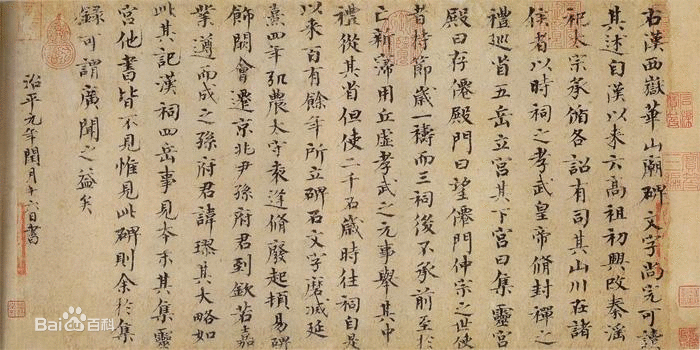 右漢西嶽華山廟碑文字尚完可讀
其述自漢以來云高祖初興改秦淫
祀太宗承循各詔有司其山川在諸
侯者以時祠之孝武皇帝脩封禪之
禮巡省五岳立宮其下宮曰集靈宮
殿曰存僊殿門曰望僊門仲宗之世使
者持節歲一禱而三祠後不承前至於
亡新寖用丘虛孝武之元事舉其中
禮從其省但使二千石歲時往祠自是
以來百有餘年所立碑石文字磨滅延
熹四年弘農太守袁逢脩廢起頓易碑
飾闕會遷京兆尹孫府君到欽若嘉
業遵而成之孫府君諱璆其大略如
此其記漢祠四岳事見本末其集靈
宮他書皆不見惟見此碑則余於集
錄可謂廣聞之益矣
治平元年閏月十六日書
Bai 百科